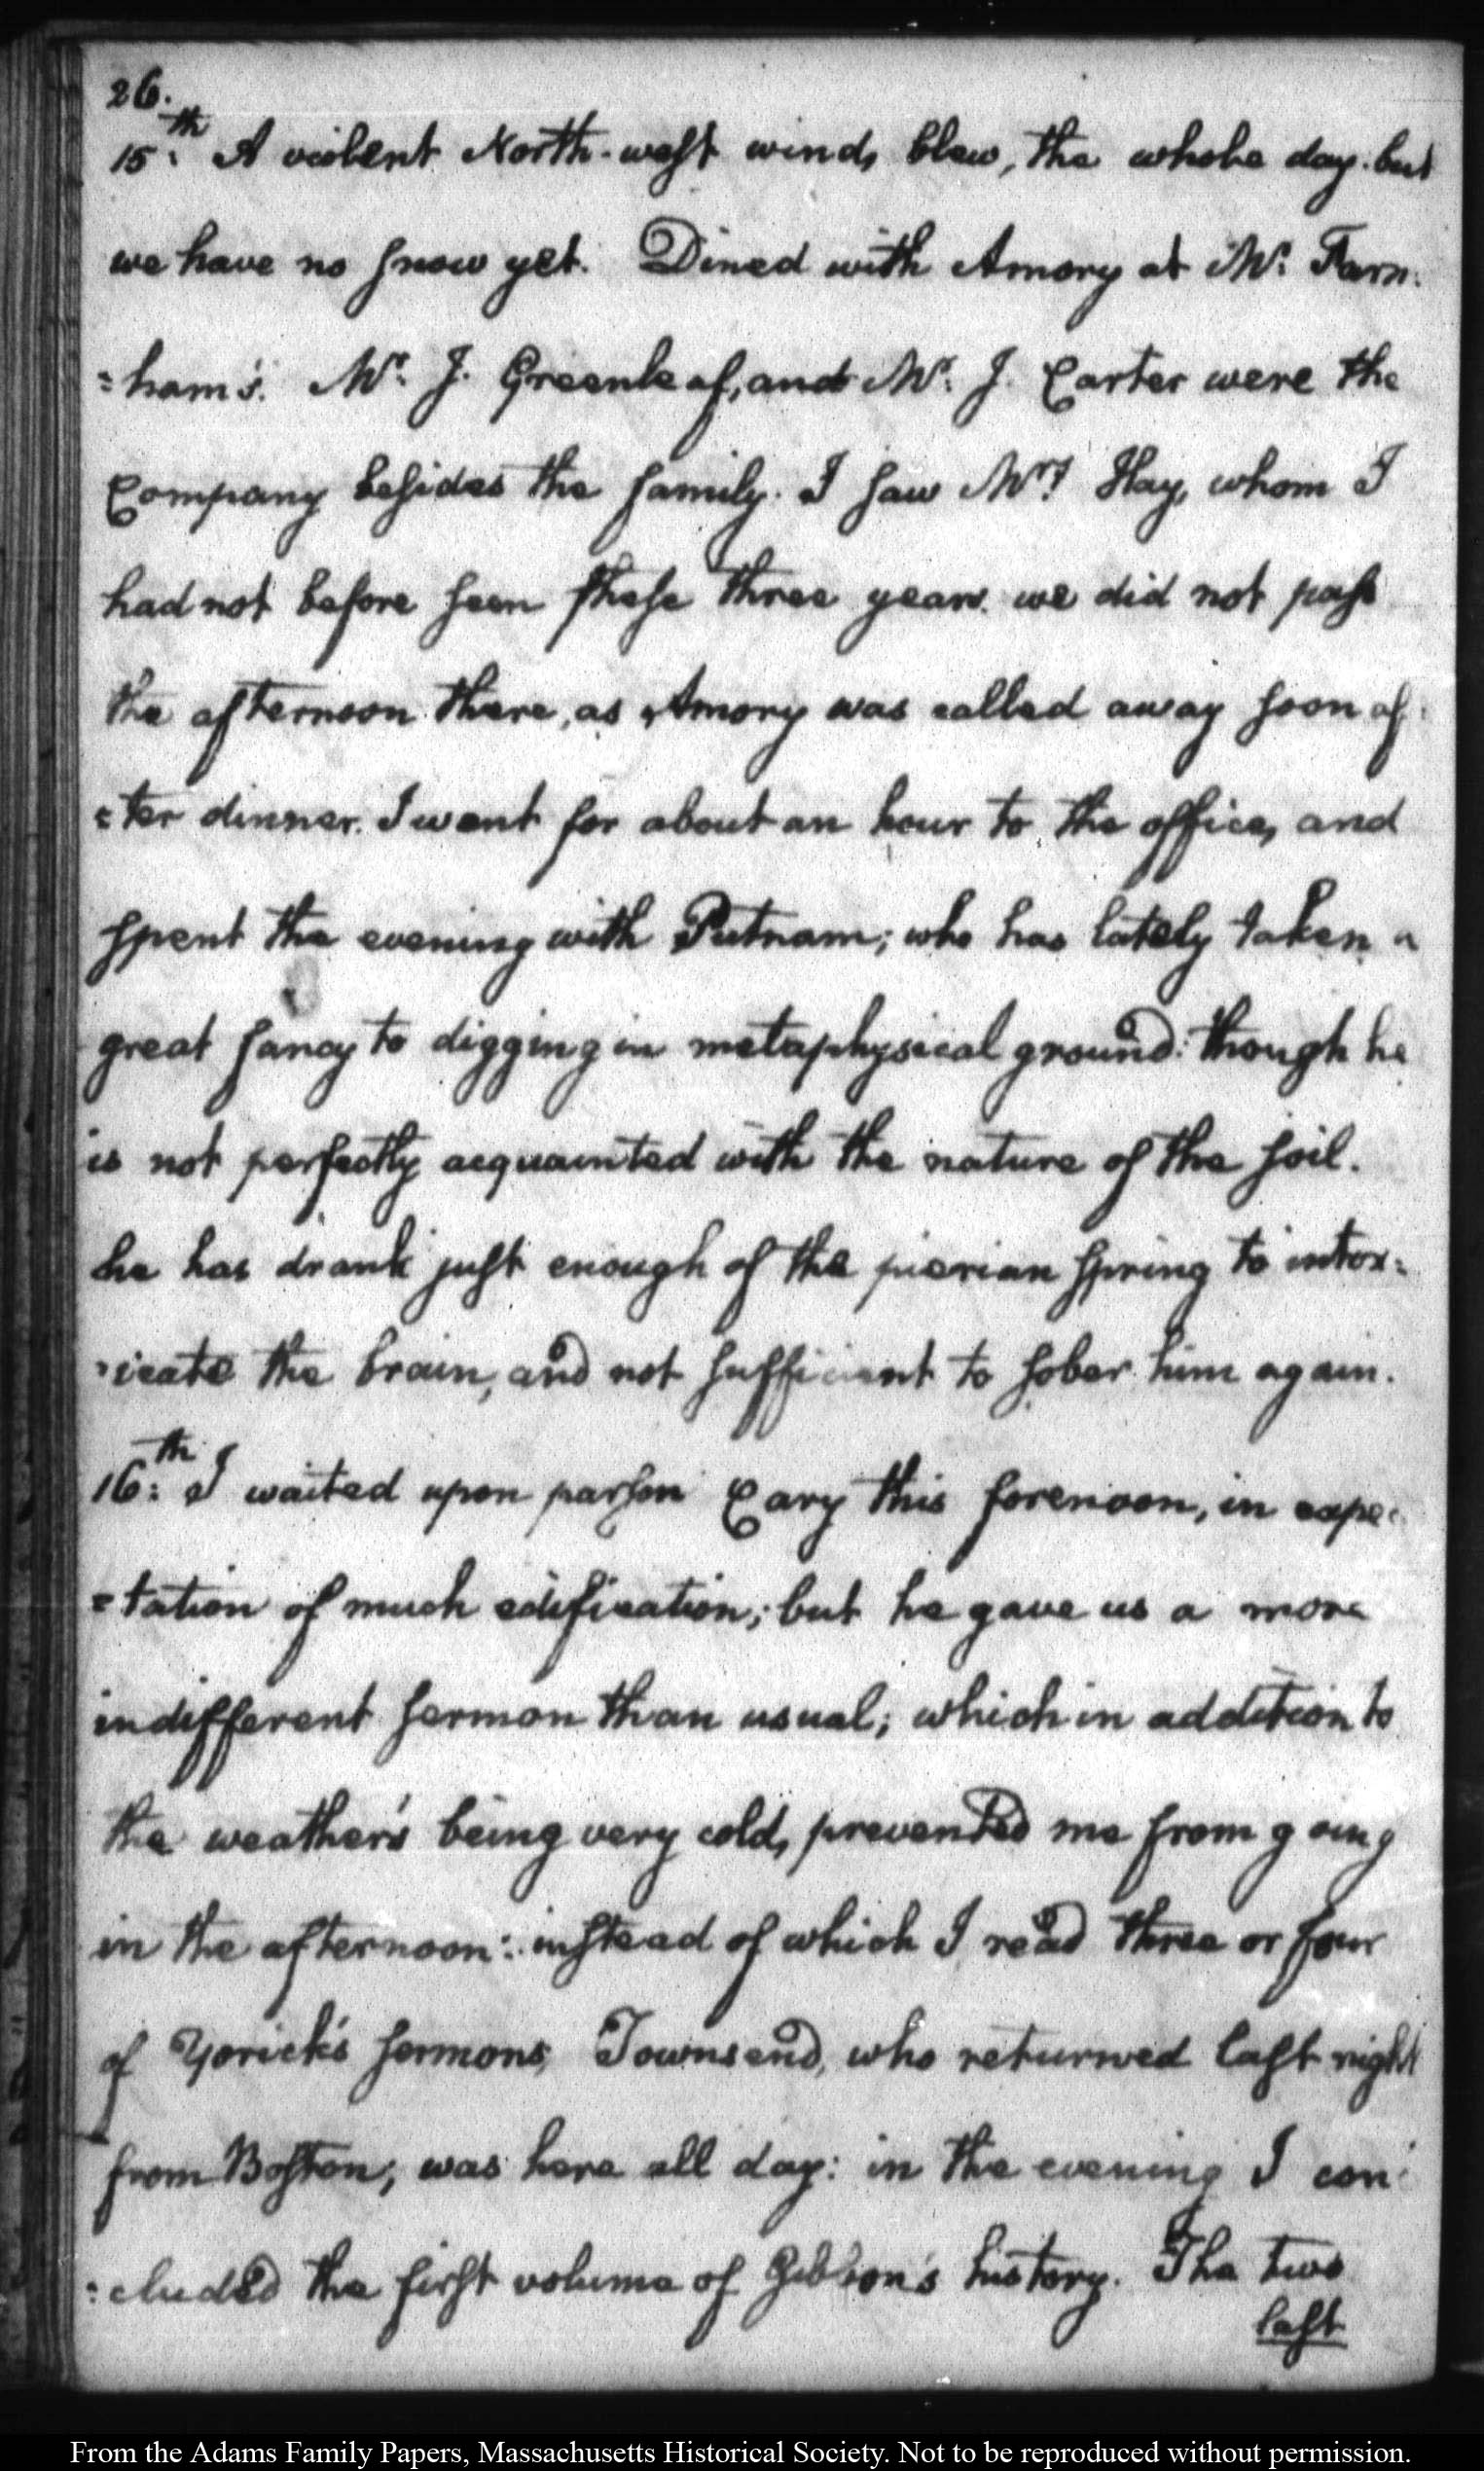 26.
15.th A violent North-west wind, blew, the whole day. but
we have no snow yet. Dined with Amory at Mr. Farn:
=ham's. Mr. J. Greenleaf, and Mr. J. Carter were the
Company besides the family. I saw Mrs. Hay, whom I
had not before seen these three years. we did not pass
the afternoon there, as Amory was called away soon af:
=ter dinner. I went for about an hour to the office, and
spent the evening with Putnam; who has lately taken a
great fancy to digging in metaphysical ground: though he
is not perfectly acquainted with the nature of the soil.
he has drank just enough of the pierian spring to intox:
=icate the brain, and not sufficient to sober him again.
16:th I waited upon parson Cary this forenoon, in expec:
=tation of much edification; but he gave us a more
indifferent sermon than usual; which in addition to
the weather's being very cold, prevented me from going
in the afternoon: instead of which I read three or four
of Yorick's sermons, Townsend, who returned last night
from Boston, was here all day: in the evening I con:
:cluded the first volume of Gibbon's history. The two
last
From the Adams Family Papers, Massachusetts Historical Society. Not to be reproduced without permission.